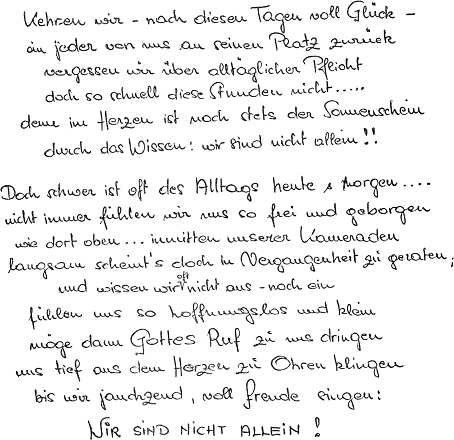 Kehren wir - nach diesen Tagen voll Glück -
ein jeder von uns an seinen Platz zurück
vergessen wir über alltäglicher Pflicht
doch so schnell diese Stunden nicht.....
denn im Herzen ist noch stets der Sonnenschein
durch das Wissen: wir sind nicht allein!!
Doch schwer ist oft des Alltags heute & morgen....
nicht immer fühlen wir uns so frei und geborgen
wie dort oben... inmitten unserer Kameraden
langsam scheint's doch in Vergangenheit zu geraten;
und wissen wir oft nicht aus - noch ein
fühlen uns so hoffnungslos und klein
möge dann Gottes Ruf zu uns dringen
uns tief aus dem Herzen zu Ohren klingen
bis wir jauchzend, voll Freude singen:
WIR SIND NICHT ALLEIN!